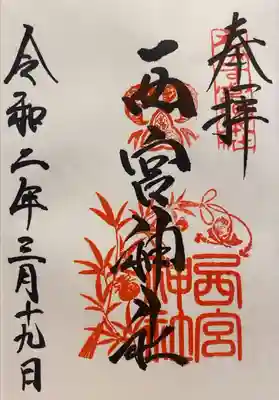 奉拝
西宮神社
令和二年三月十九日
西宮
神社